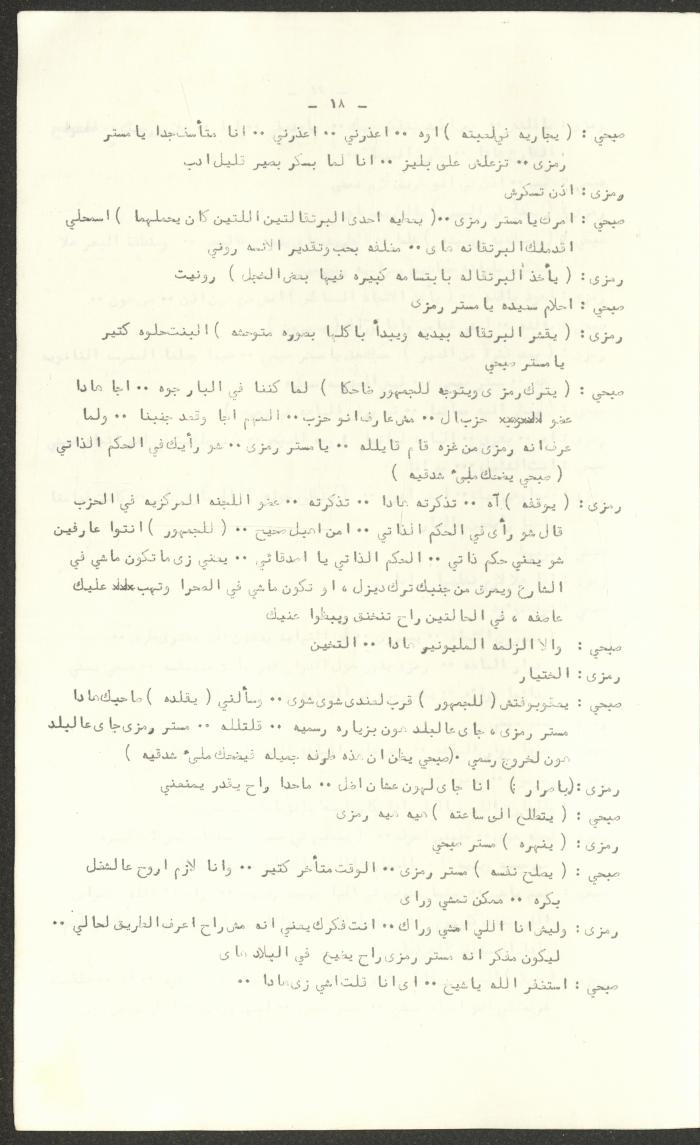 - ١٨ -
صبحي : ( يجاريه في لعبته ) اوه ٠٠ اعذرني ٠٠ اعذرني ٠٠ انا متأسف جدا يا مستر
رمزى ٠٠ تزعلش على بليز ٠٠ انا لما بسكر بصير قليل ادب
رمزى : اذن تسكرش
صبحي : امرك يا مستر رمزى ٠٠( يعطيه احدى البرتقالتين اللتين كان يحملهما ) اسمحلي
اقدملك البرتقانه هاى ٠٠ مغلفه بحب وتقدير الانسه روني
رمزى : ( يأخذ البرتقاله بابتسامه كبيره فيها بعض الخجل ) رونيت
صبحي : احلام سعيده يا مستر رمزى
رمزى : ( يقشر البرتقاله بيديه ويبدأ باكلها بصوره متوحشه ) البنت حلوه كتير
يا مستر صبحي
صبحي : ( يترك رمزى ويتوجه للجمهور ضاحكا ) لما كنا في البار جوه ٠٠ اجا هادا
عضو حزب ال ٠٠ مش عارف انو حزب ٠٠ المهم اجا وقعد جنبنا ٠٠ ولما
عرف انه رمزى من غزه قام قايلله ٠٠ يا مستر رمزى ٠٠ شو رأيك في الحكم الذاتي
( صبحي يضحك ملىء شدقيه )
رمزى : ( يوقفه ) آه ٠٠ تذكرته هادا ٠٠ تذكرته ٠٠ عضو اللجنه المركزيه في الحزب
قال شو رأى في الحكم الذاتي ٠٠ امن اهبل صحيح ٠٠ ( للجمهور ) انتوا عارفين
شو يعني حكم ذاتي ٠٠ الحكم الذاتي يا اصدقائي ٠٠ يعني زى ما تكون ماشي في
الشارع ويمرق من جنبك ترك ديزل ، او تكون ماشي في الصحرا وتهب عليك
عاصفه ، في الحالتين راح تنخنق ويبظوا عنيك
صبحي : والا الزلمه المليونير هادا ٠٠ التخين
رمزى : الختيار
صبحي : يعقوبوفتش ( للجمهور ) قرب لعندى شوى شوى ٠٠ وسألني ( يقلده ) صاحبك هادا
مستر رمزى ، جاى عالبلد هون بزياره رسميه ٠٠ قلتلله ٠٠ مستر رمزى جاى عالبلد
هون لخروج رسمي ٠(صبحي يظن ان هذه طرفه جميله فيضحك ملىء شدقيه )
رمزى : (باصرار :) انا جاى لهون عشان اظل ٠٠ ماحدا راح يقدر يمنعني
صبحي : ( يتطلع الى ساعته ) هيه هيه رمزى
رمزى : ( ينهره ) مستر صبحي
صبحي : ( يصلح نفسه ) مستر رمزى ٠٠ الوقت متأخر كتير ٠٠ وانا لازم اروح عالشغل
بكره ٠٠ ممكن تمشي وراى
رمزى : وليش انا اللي امشي وراك ٠٠ انت فكرك يعني انه مش راح اعرف الطريق لحالي ٠٠
ليكون مفكر انه مستر رمزى راح يضيع في البلاد هاى
صبحي : استغفر الله يا شيخ ٠٠ اى انا قلت اشي زى هادا ٠٠